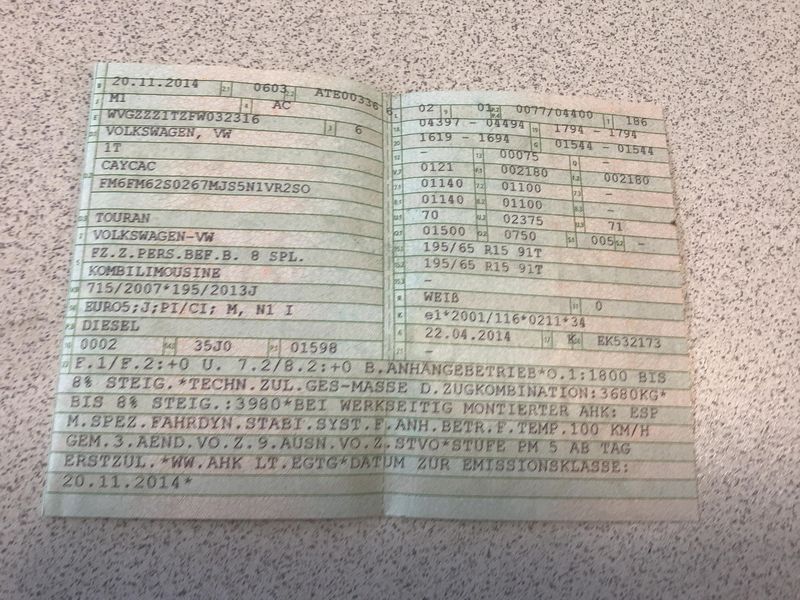 B 20.11.2014 2.1 0603 2.2 ATE00336 6
J M1 4 AC
E WVGZZZ1TZFW032316 3 6
D.1 VOLKSWAGEN, VW
1T
CAYCAC
FM6FM62S0267MJS5N1VR2SO
D.3 TOURAN
2 VOLKSWAGEN-VW
5 FZ.Z.PERS.BEF.B. 8 SPL.
KOMBILIMOUSINE
V.9 715/2007*195/2013J
14 EURO5;J;PI/CI; M, N1 I
P.3 DIESEL
10 0002 14.1 35J0 P.1 01598
L 02 9 01 P.2 P.4 0077/04400 T 186
18 04397 - 04494 19 1794 - 1794
20 1619 - 1694 G 01544 - 01544
12 - 13 00075 Q -
V.7 0121 F.1 002180 F.2 002180
7.1 01140 7.2 01100 7.3 -
8.1 01140 8.2 01100 8.3 -
U.1 70 U.2 02375 U.3 71
O.1 01500 O.2 0750 S.1 005 S.2 -
15.1 195/65 R15 91T
15.2 195/65 R15 91T
15.3 -
R WEIß 11 0
K e1*2001/116*0211*34
6 22.04.2014 17 K 16 EK532173
21 -
22 F.1/F.2:+0 U. 7.2/8.2:+0 B.ANHÄNGEBETRIEB*O.1:1800 BIS
8% STEIG.*TECHN.ZUL.GES-MASSE D.ZUGKOMBINATION:3680KG*
BIS 8% STEIG.:3980*BEI WERKSEITIG MONTIERTER AHK: ESP
M.SPEZ.FAHRDYN.STABI.SYST.F.ANH.BETR.F.TEMP.100 KM/H
GEM.3.AEND.VO.Z.9.AUSN.VO.Z.STVO*STUFE PM 5 AB TAG
ERSTZUL.*WW.AHK LT.EGTG*DATUM ZUR EMISSIONSKLASSE:
20.11.2014*